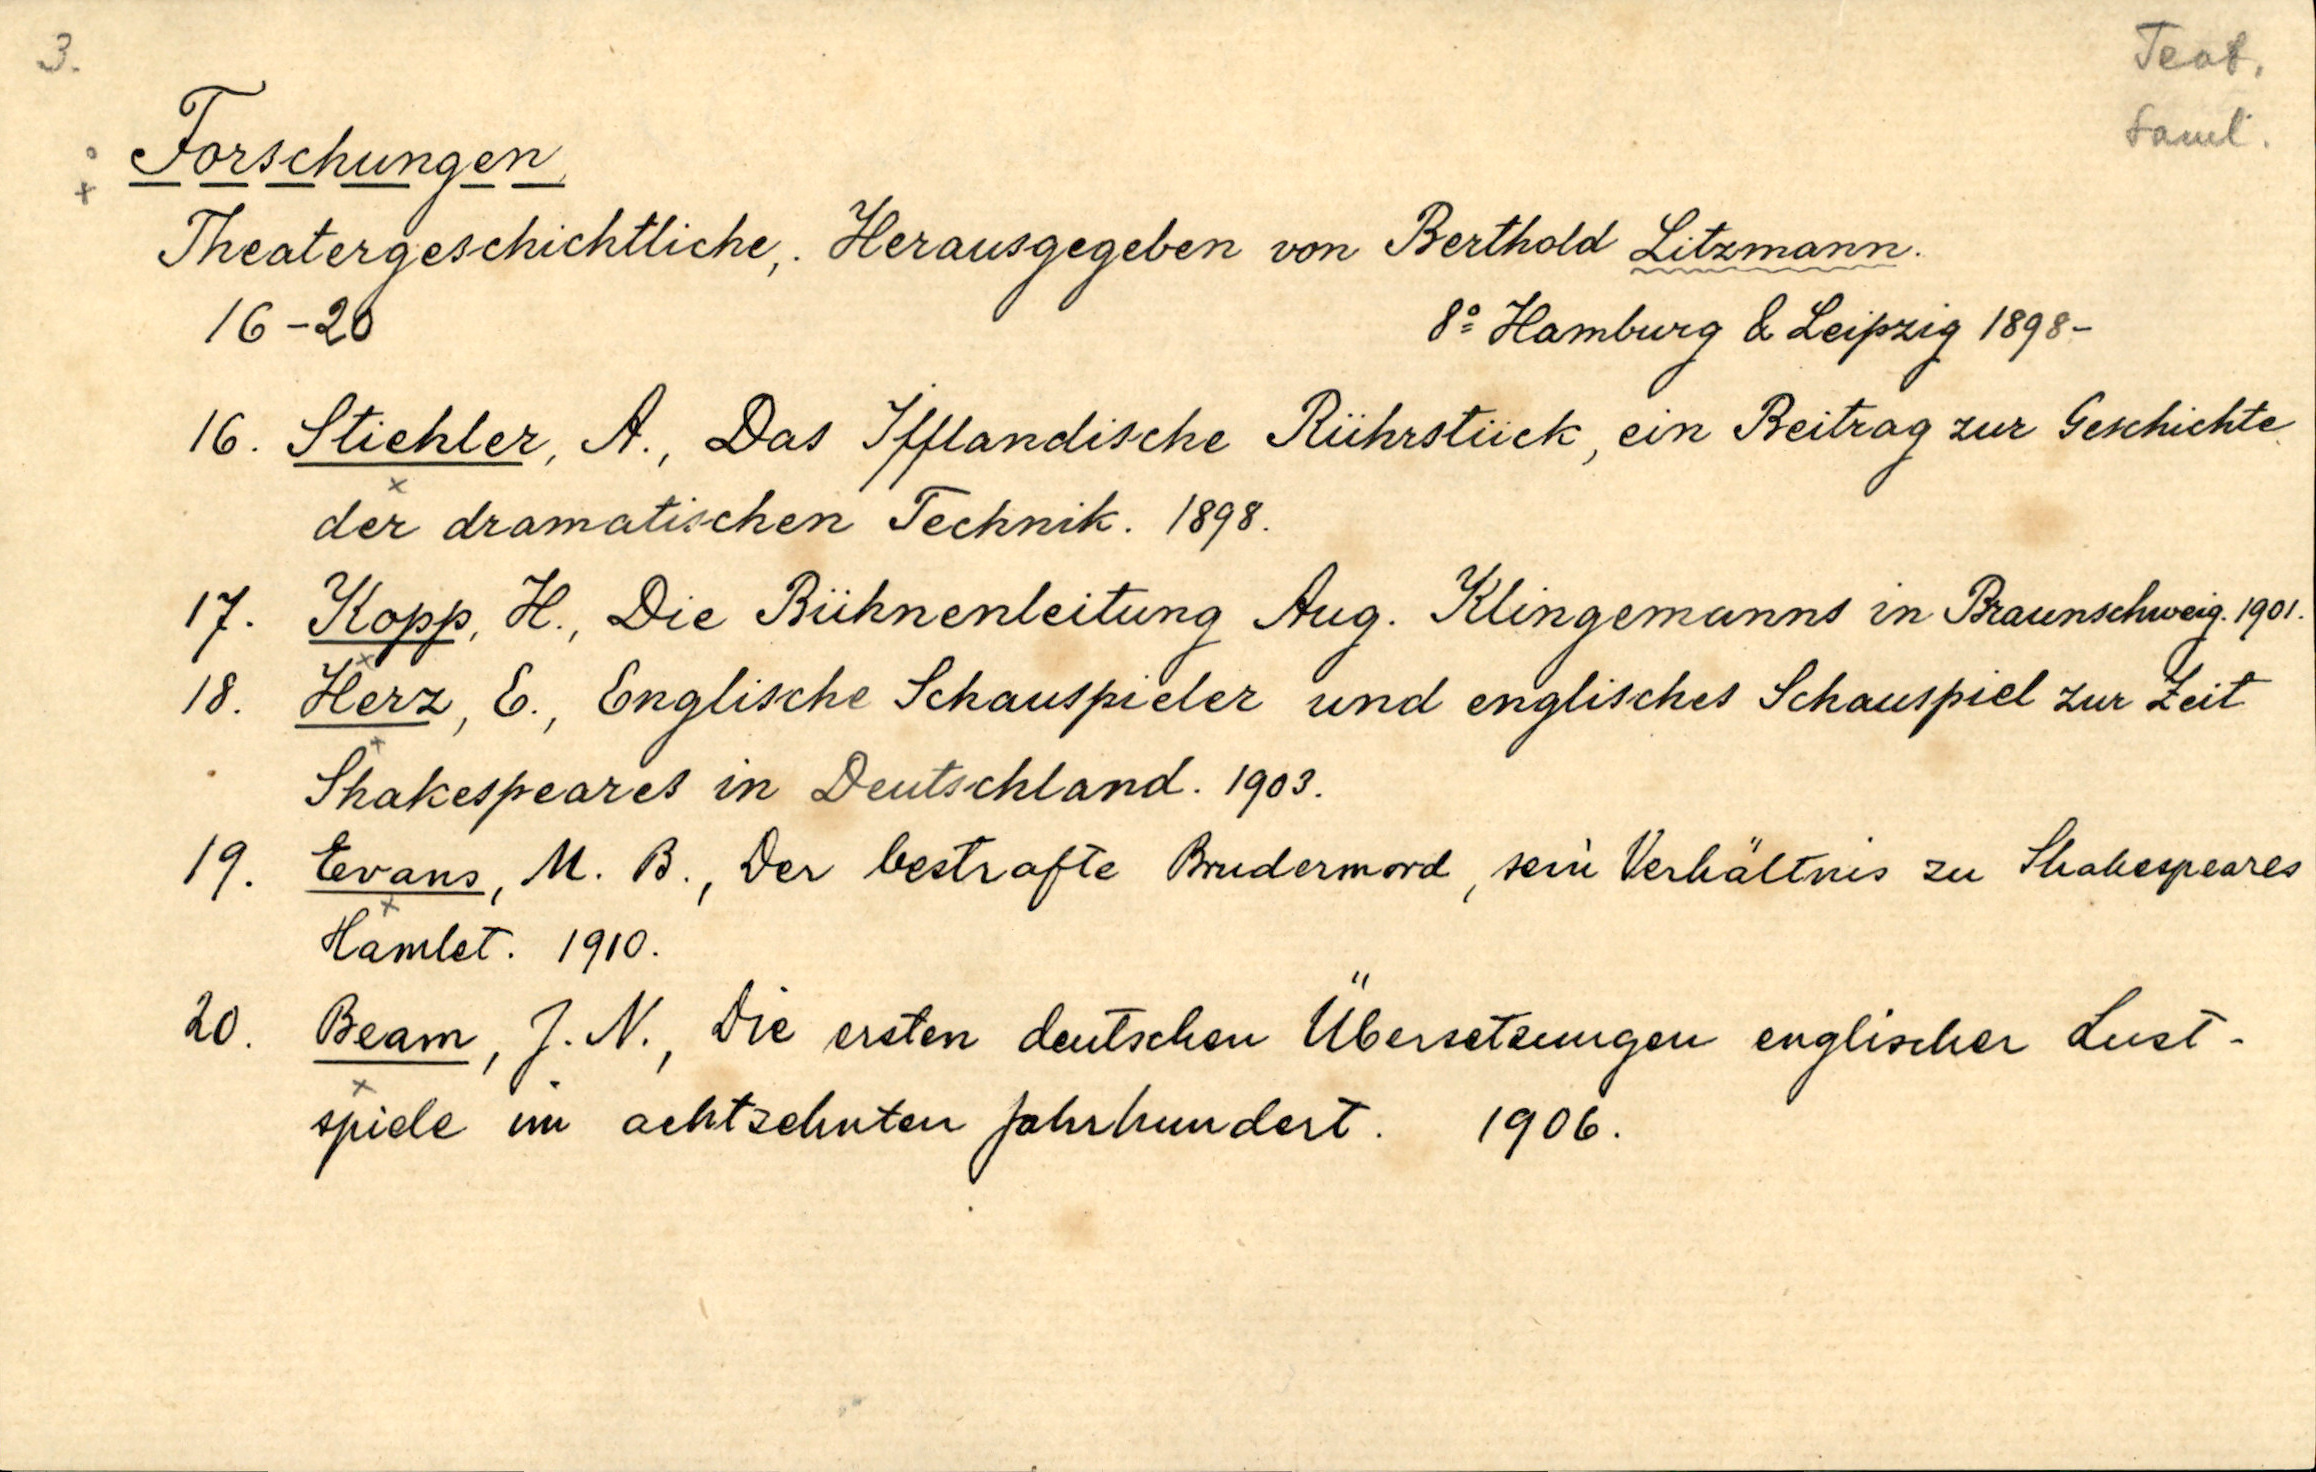 3.
Teat.
Saml.
Forschungen
Theatergeschichtliche,. Herausgegeben von Berthold Litzmann.
16-20
8º Hamburg & Leipzig 1898-
16. Stiehler, A., Das Ifflandische Rührstück, ein Beitrag zur Geschichte
der dramatischen Technik. 1898.
17. Kopp, H., Die Bühnenleitung Aug. Klingemanns in Braunschweig. 1901.
18. Herz, E., Englische Schauspieler und englisches Schauspiel zur Zeit
Shakespeares in Deutschland. 1903.
19. Evans, M. B., Der bestrafte Brudermord, sein Verhältnis zu Shakespeares
Hamlet. 1910.
20. Beam, J. N., Die ersten deutschen Übersetzungen englischer Lust-
spiele im achtzehnten Jahrhundert. 1906.